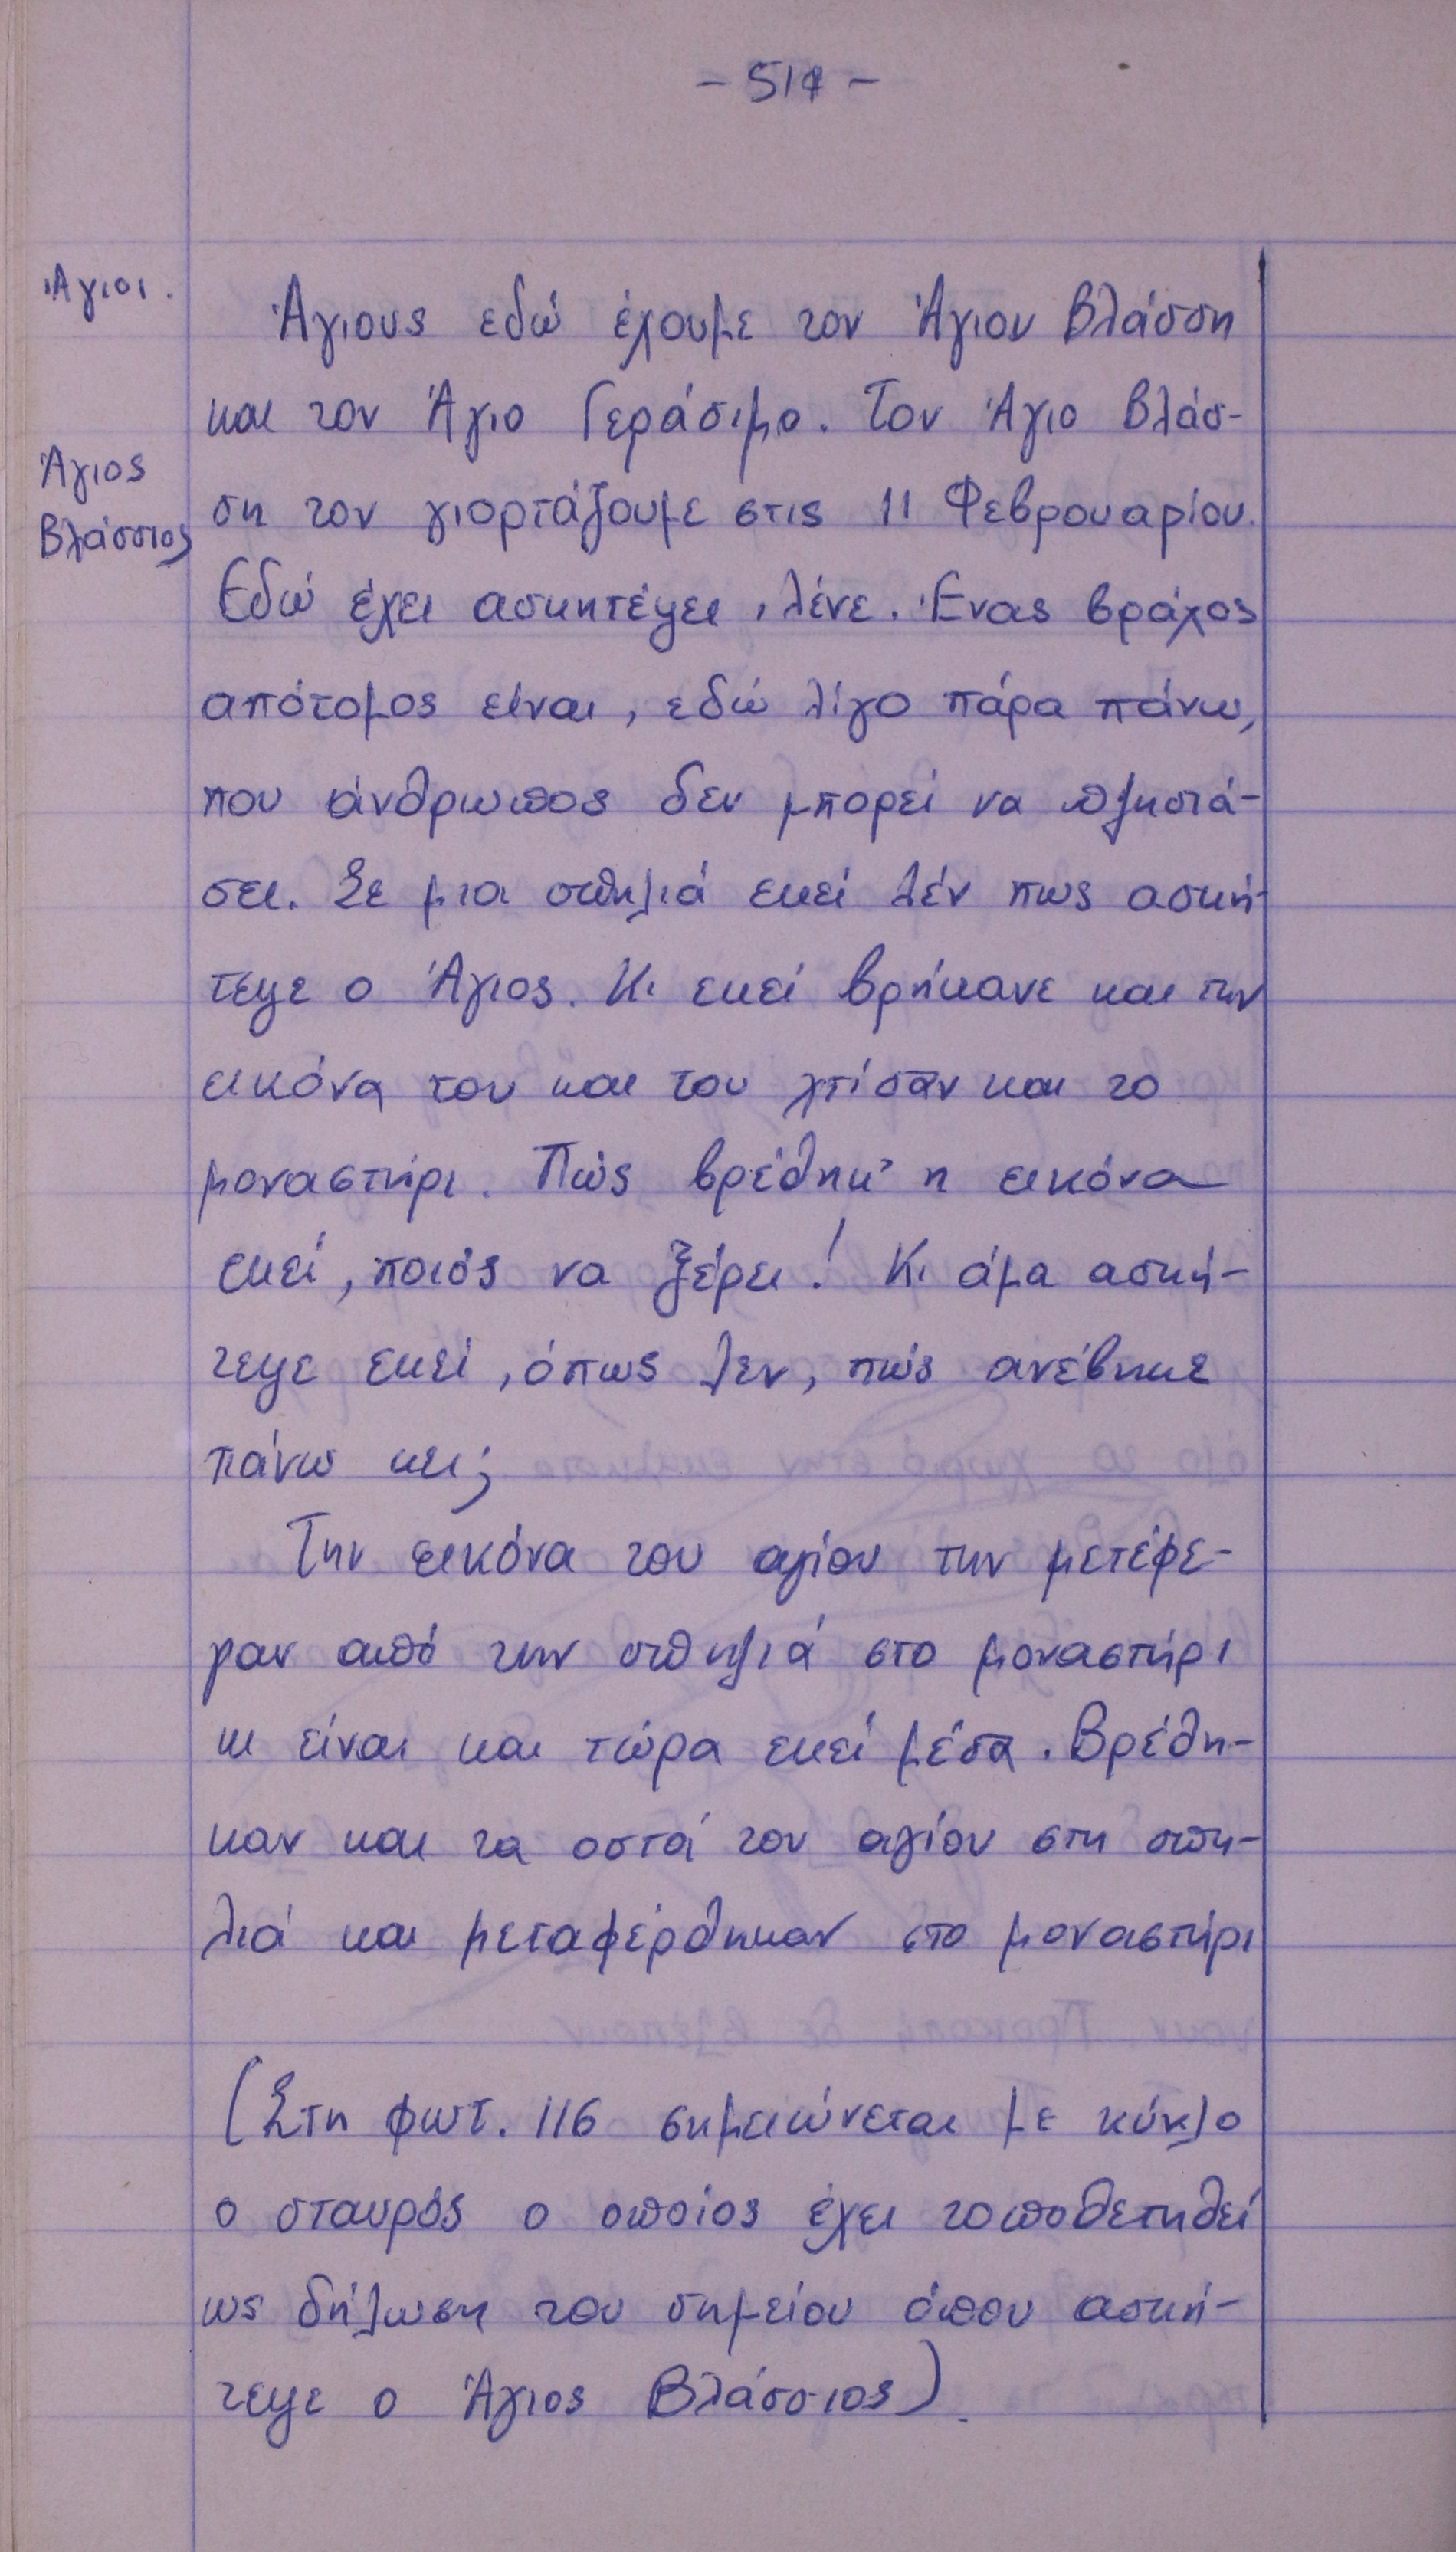 - 517 -
Άγιοι.
Άγιους εδώ έχουμε τον Άγιον Βλάσση
και τον Άγιο Γεράσιμο. Τον Άγιο Βλάσ-
Άγιος
Βλάσσιος
ση τον γιορτάζουμε στις 11 Φεβρουαρίου.
Εδώ έχει ασκητέψει, λένε. Ένας βράχος
απότομος είναι, εδώ λίγο πάρα πάνω,
που άνθρωπος δεν μπορεί να πλησιά-
σει. Σε μια σπηλιά εκεί λέν πως ασκή-
τεψε ο Άγιος. Κι εκεί βρήκανε και την
εικόνα του και του χτίσαν και το
μοναστήρι. Πώς βρέθηκ' η εικόνα
εκεί, ποιός να ξέρει! Κι άμα ασκή-
τεψε εκεί, όπως λεν, πώς ανέβηκε
πάνω κει;
Την εικόνα του αγίου την μετέφε-
ραν από την σπηλιά στο μοναστήρι
κι είναι και τώρα εκεί μέσα. Βρέθη-
καν και τα οστά του αγίου στη σπη-
λιά και μεταφέρθηκαν στο μοναστήρι
(Στη φωτ. 116 σημειώνεται με κύκλο
ο σταυρός ο οποίος έχει τοποθετηθεί
ως δήλωση του σημείου όπου ασκή-
τεψε ο Άγιος Βλάσσιος).